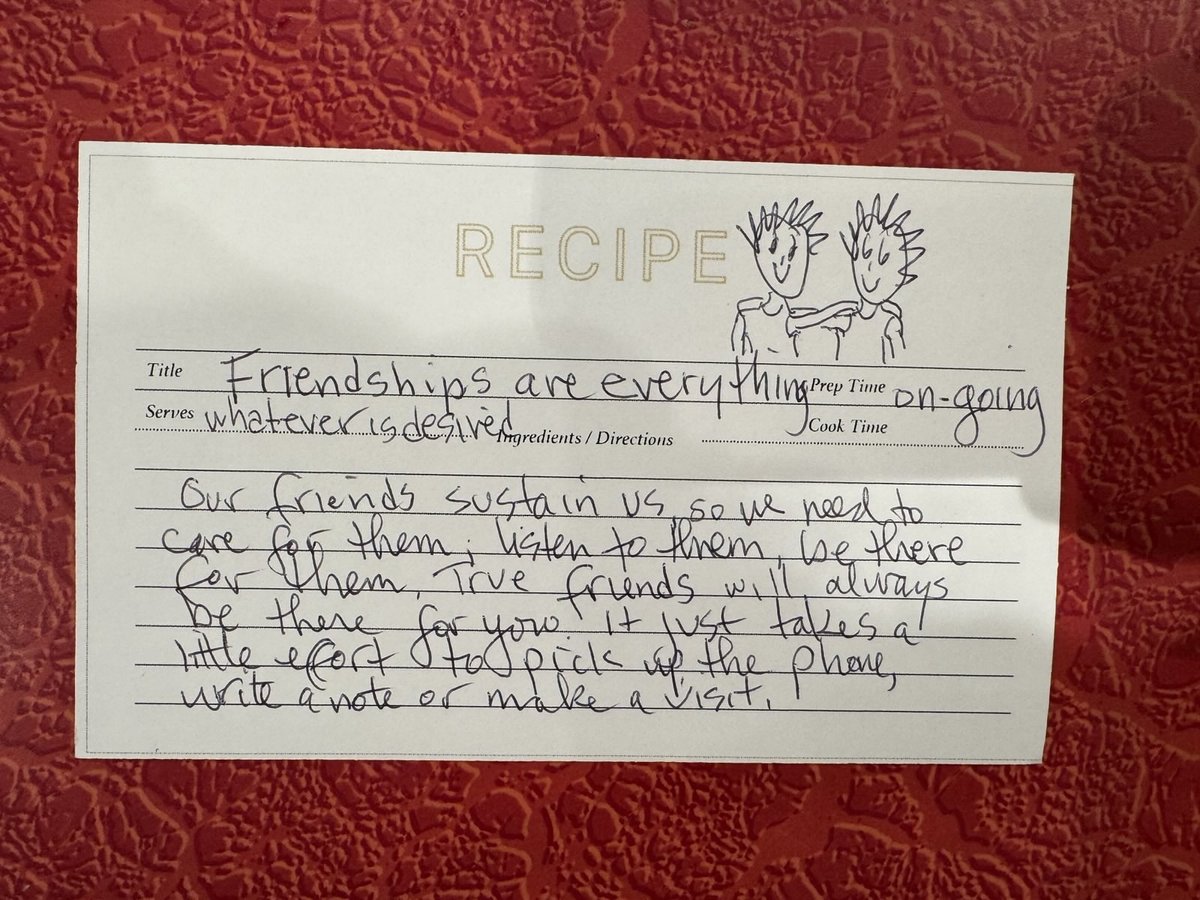 RECIPE
Title Friendships are everything Prep Time on-going
Serves whatever is desired Ingredients / Directions Cook Time
Our friends sustain us, so we need to
care for them, listen to them, be there
for them. True friends will always
be there for you. It just takes a
little effort to pick up the phone,
write a note or make a visit.